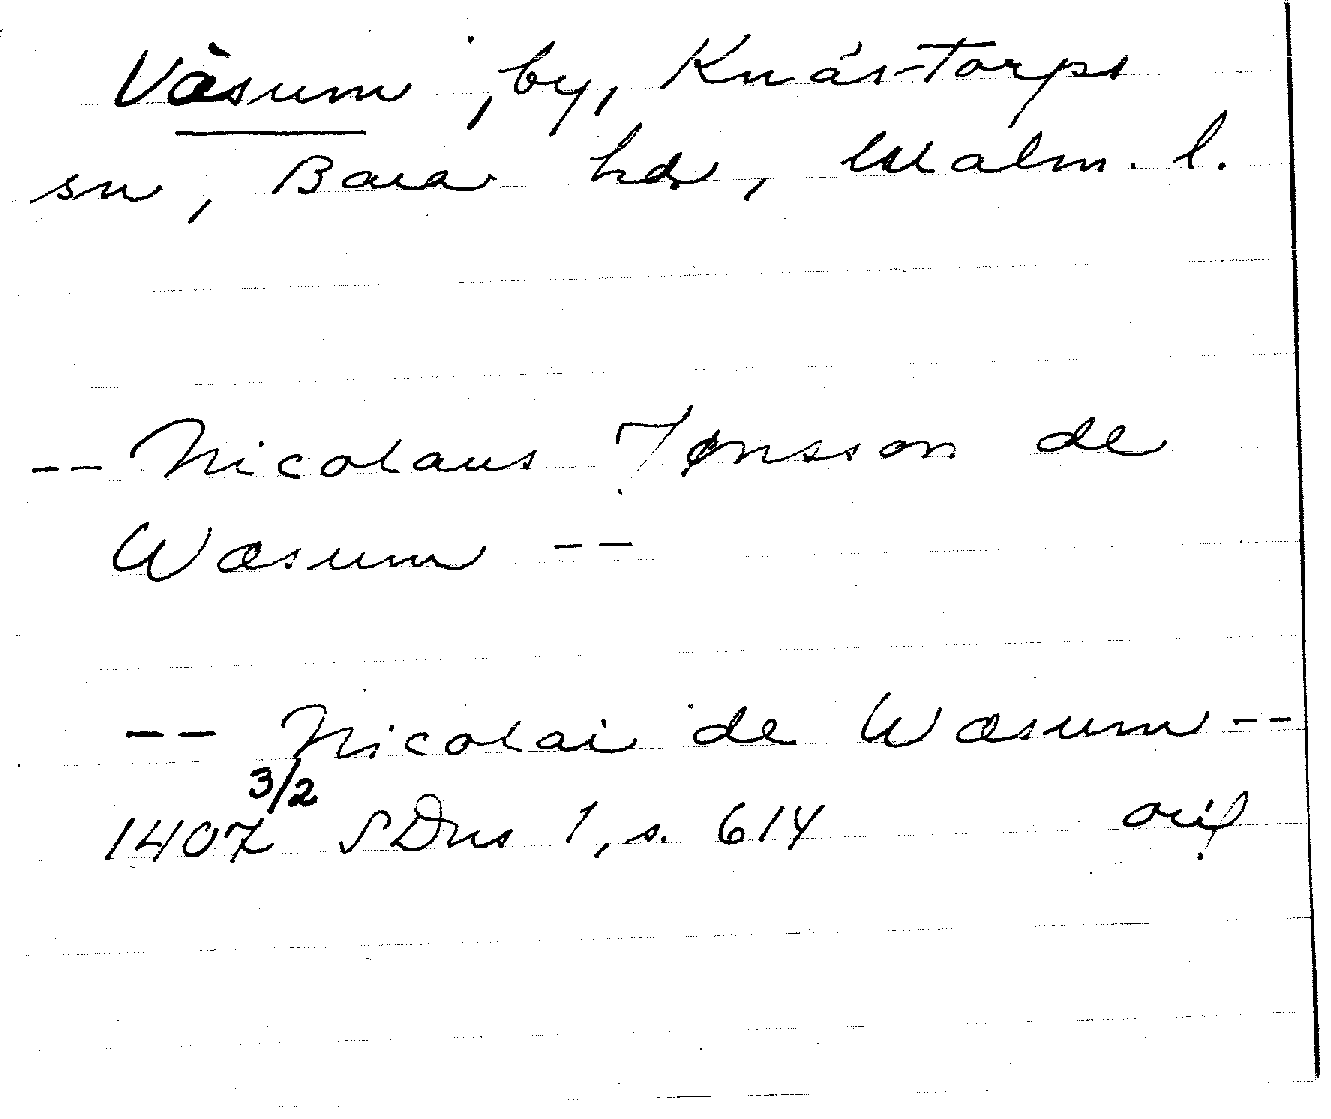 Väsum, by, Knästorps
sn, Bara hd, Malm. l.
-- Nicolaus Jønsson de
Wæsum --
-- Nicolai de Wæsum --
1407 3/2 SDns 1, s. 614 orig